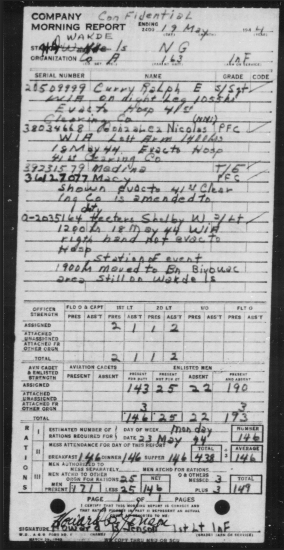 COMPANY
MORNING REPORT
Confidential
ENDING
2400 19 May 1944
WAKDE
Wakde Is NG
ORGANIZATION Co A 163 Inf
SERIAL NUMBER NAME GRADE CODE
20509999 Curry Ralph E S/Sgt
WIA on right leg 1055
Evacto Hosp 41st
Clearing Co (NNI)
38034668 Gonzalez Nicolas PFC
WIA Left Arm 1400
18 May 44 Evacto Hosp
41st Clearing Co
39231579 Medina T/5
36427077 Macy PFC
Shown evacto 41st Clear
ing Co is amended to
dty
O-2035164 Shelby W 2/Lt
1200 18 May 44 WIA
right hand not evacto
Hosp
Station & event
1900 moved to Bn Bivouac
area Still on Wakde Is
OFFICER STRENGTH FLD O & CAPT 1ST LT 2D LT WO FLT O
PRES ABS'T PRES ABS'T PRES ABS'T PRES ABS'T PRES ABS'T
ASSIGNED 2 1 1 2
ATTACHED UNASSIGNED
ATTACHED FR OTHER ORGN
TOTAL 2 1 1 2
AVN CADET & ENLISTED STRENGTH AVIATION CADETS ENLISTED MEN
PRESENT ABSENT PRESENT FOR DUTY PRESENT NOT FOR DUTY ABSENT PRESENT AND ABSENT
ASSIGNED 143 25 22 190
ATTACHED UNASSIGNED
ATTACHED FR OTHER ORGN 3 3
TOTAL 146 25 22 193
RATIONS
I ESTIMATED NUMBER OF RATIONS REQUIRED FOR DAY OF WEEK Monday NUMBER
DATE 23 May 44 146
II MEN ATTENDANCE FOR DAY OF THIS REPORT TOTAL AVERAGE
BREAKFAST 146 DINNER 146 SUPPER 146 438 146
III MEN AUTHORIZED TO MESS SEPARATELY MEN ATCHD FOR RATIONS
MEN ATCHD TO OTHER ORGN FOR RATIONS 25 NET MESSED 3 TOTAL
MEN PRESENT 171 25 146 PLUS 3 149
PAGE 1 OF 1 PAGES
I CERTIFY THAT THIS MORNING REPORT IS CORRECT
SIGNATURE 1st Lt Inf